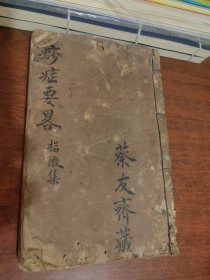 痧症要畧
指徵集
蔡友齋藏